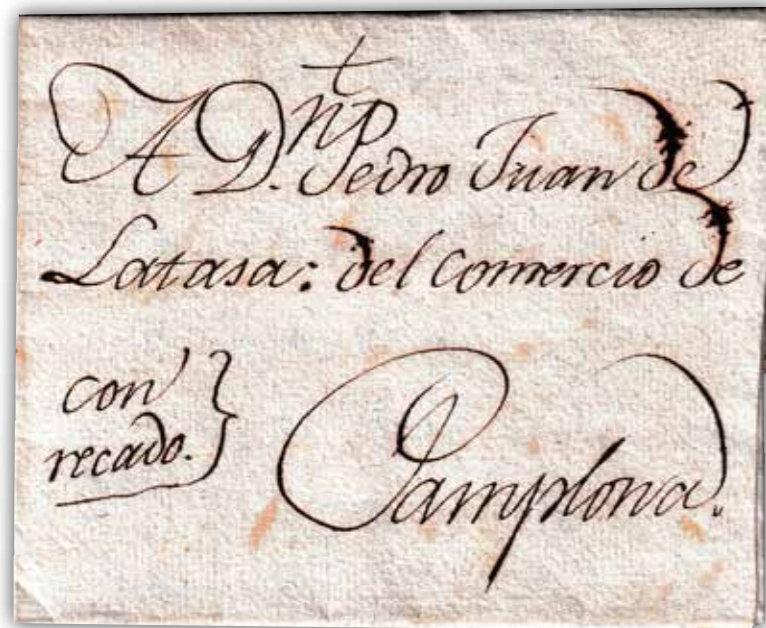 †
A Dⁿ. Pedro Juan de
Latasa: del Comercio de
con
recado.}
Pamplona.